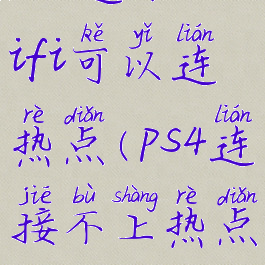 kě yǐ lián
ifi可以连
rè diǎn lián
热点(PS4连
jiē bù shàng rè diǎn
接不上热点